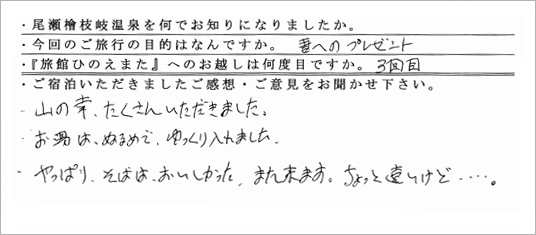 ・尾瀬檜枝岐温泉を何でお知りになりましたか。
・今回のご旅行の目的はなんですか。 妻へのプレゼント
・『旅館ひのえまた』へのお越しは何度目ですか。 3回目
・ご宿泊いただきましたご感想・ご意見をお聞かせ下さい。
・山の幸、たくさんいただきました。
・お湯は、ぬるめで、ゆっくり入れました。
・やっぱり、そばは、おいしかった、また来ます。ちょっと遠いけど・・・・。